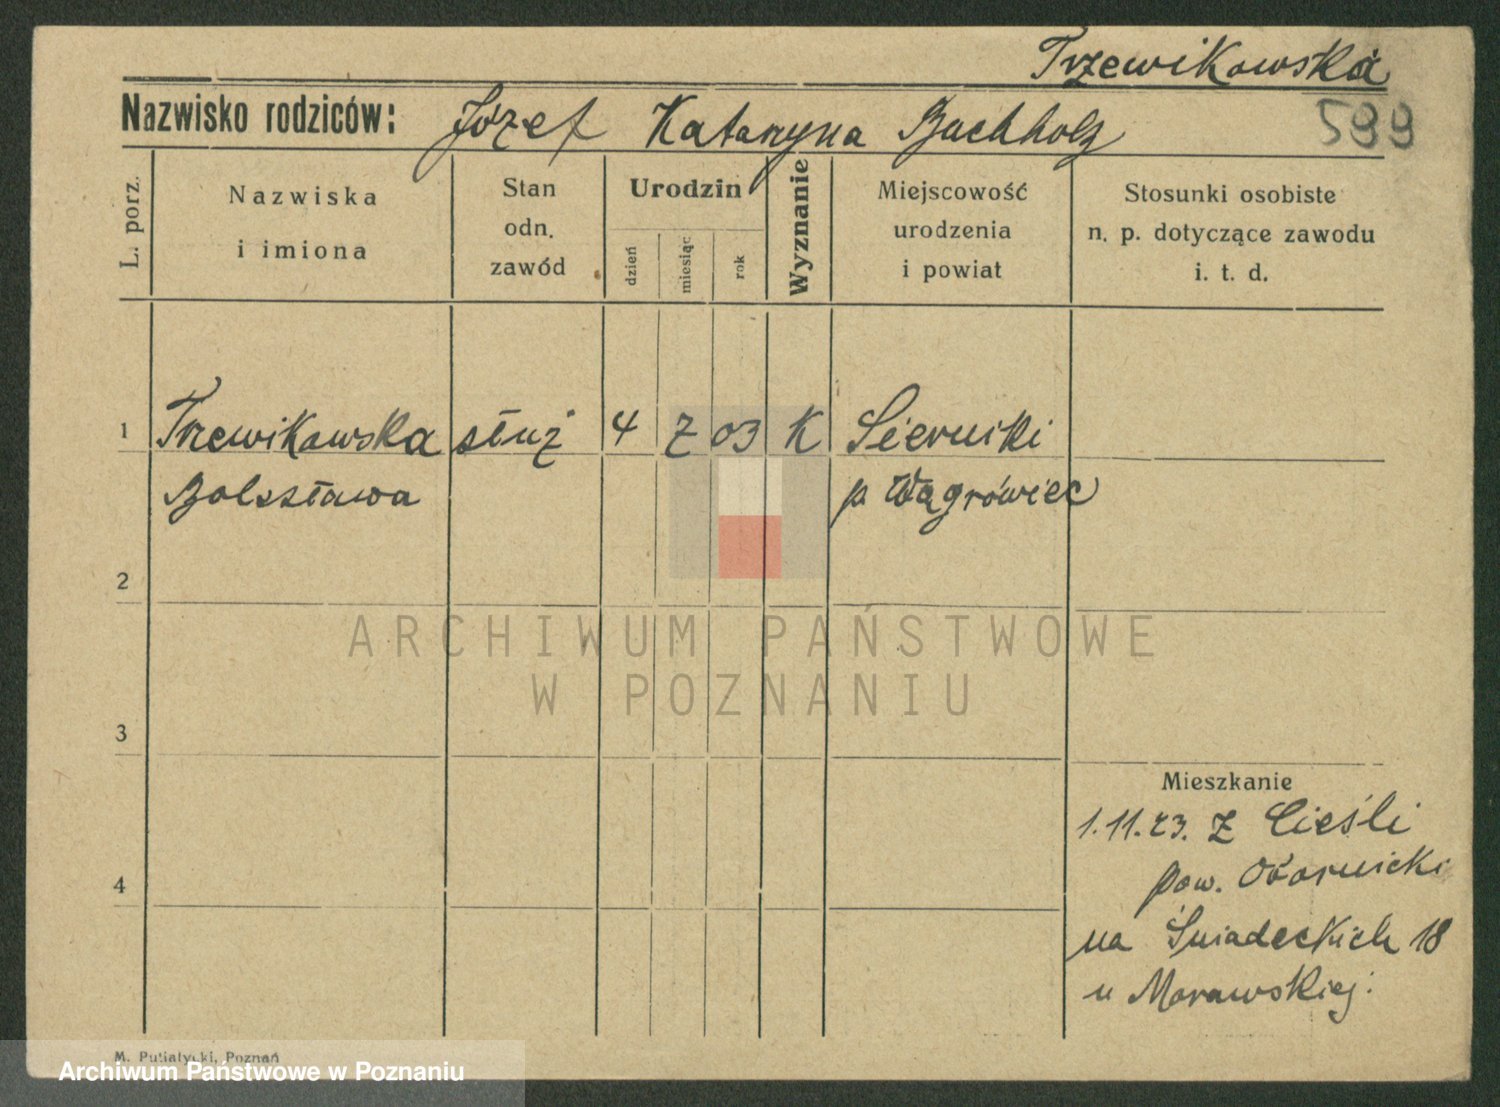 Trzewikowska
Nazwisko rodziców: Józef Katarzyna Buchholz
599
L. porz.
Nazwiska
i imiona
Stan
odn.
zawód
Urodzin
dzień
miesiąc
rok
Wyznanie
Miejscowość
urodzenia
i powiat
Stosunki osobiste
n. p. dotyczące zawodu
i. t. d.
1 Trzewikowska służ 4 7 03 K Sierniki
Bolesława p. Wągrówiec
2
ARCHIWUM PAŃSTWOWE
W POZNANIU
3
Mieszkanie
1.11.23. Z Cieśli
4
pow. Obornicki
na Śniadeckich 18
u Morawskiej.
M. Putiatycki, Poznań
Archiwum Państwowe w Poznaniu